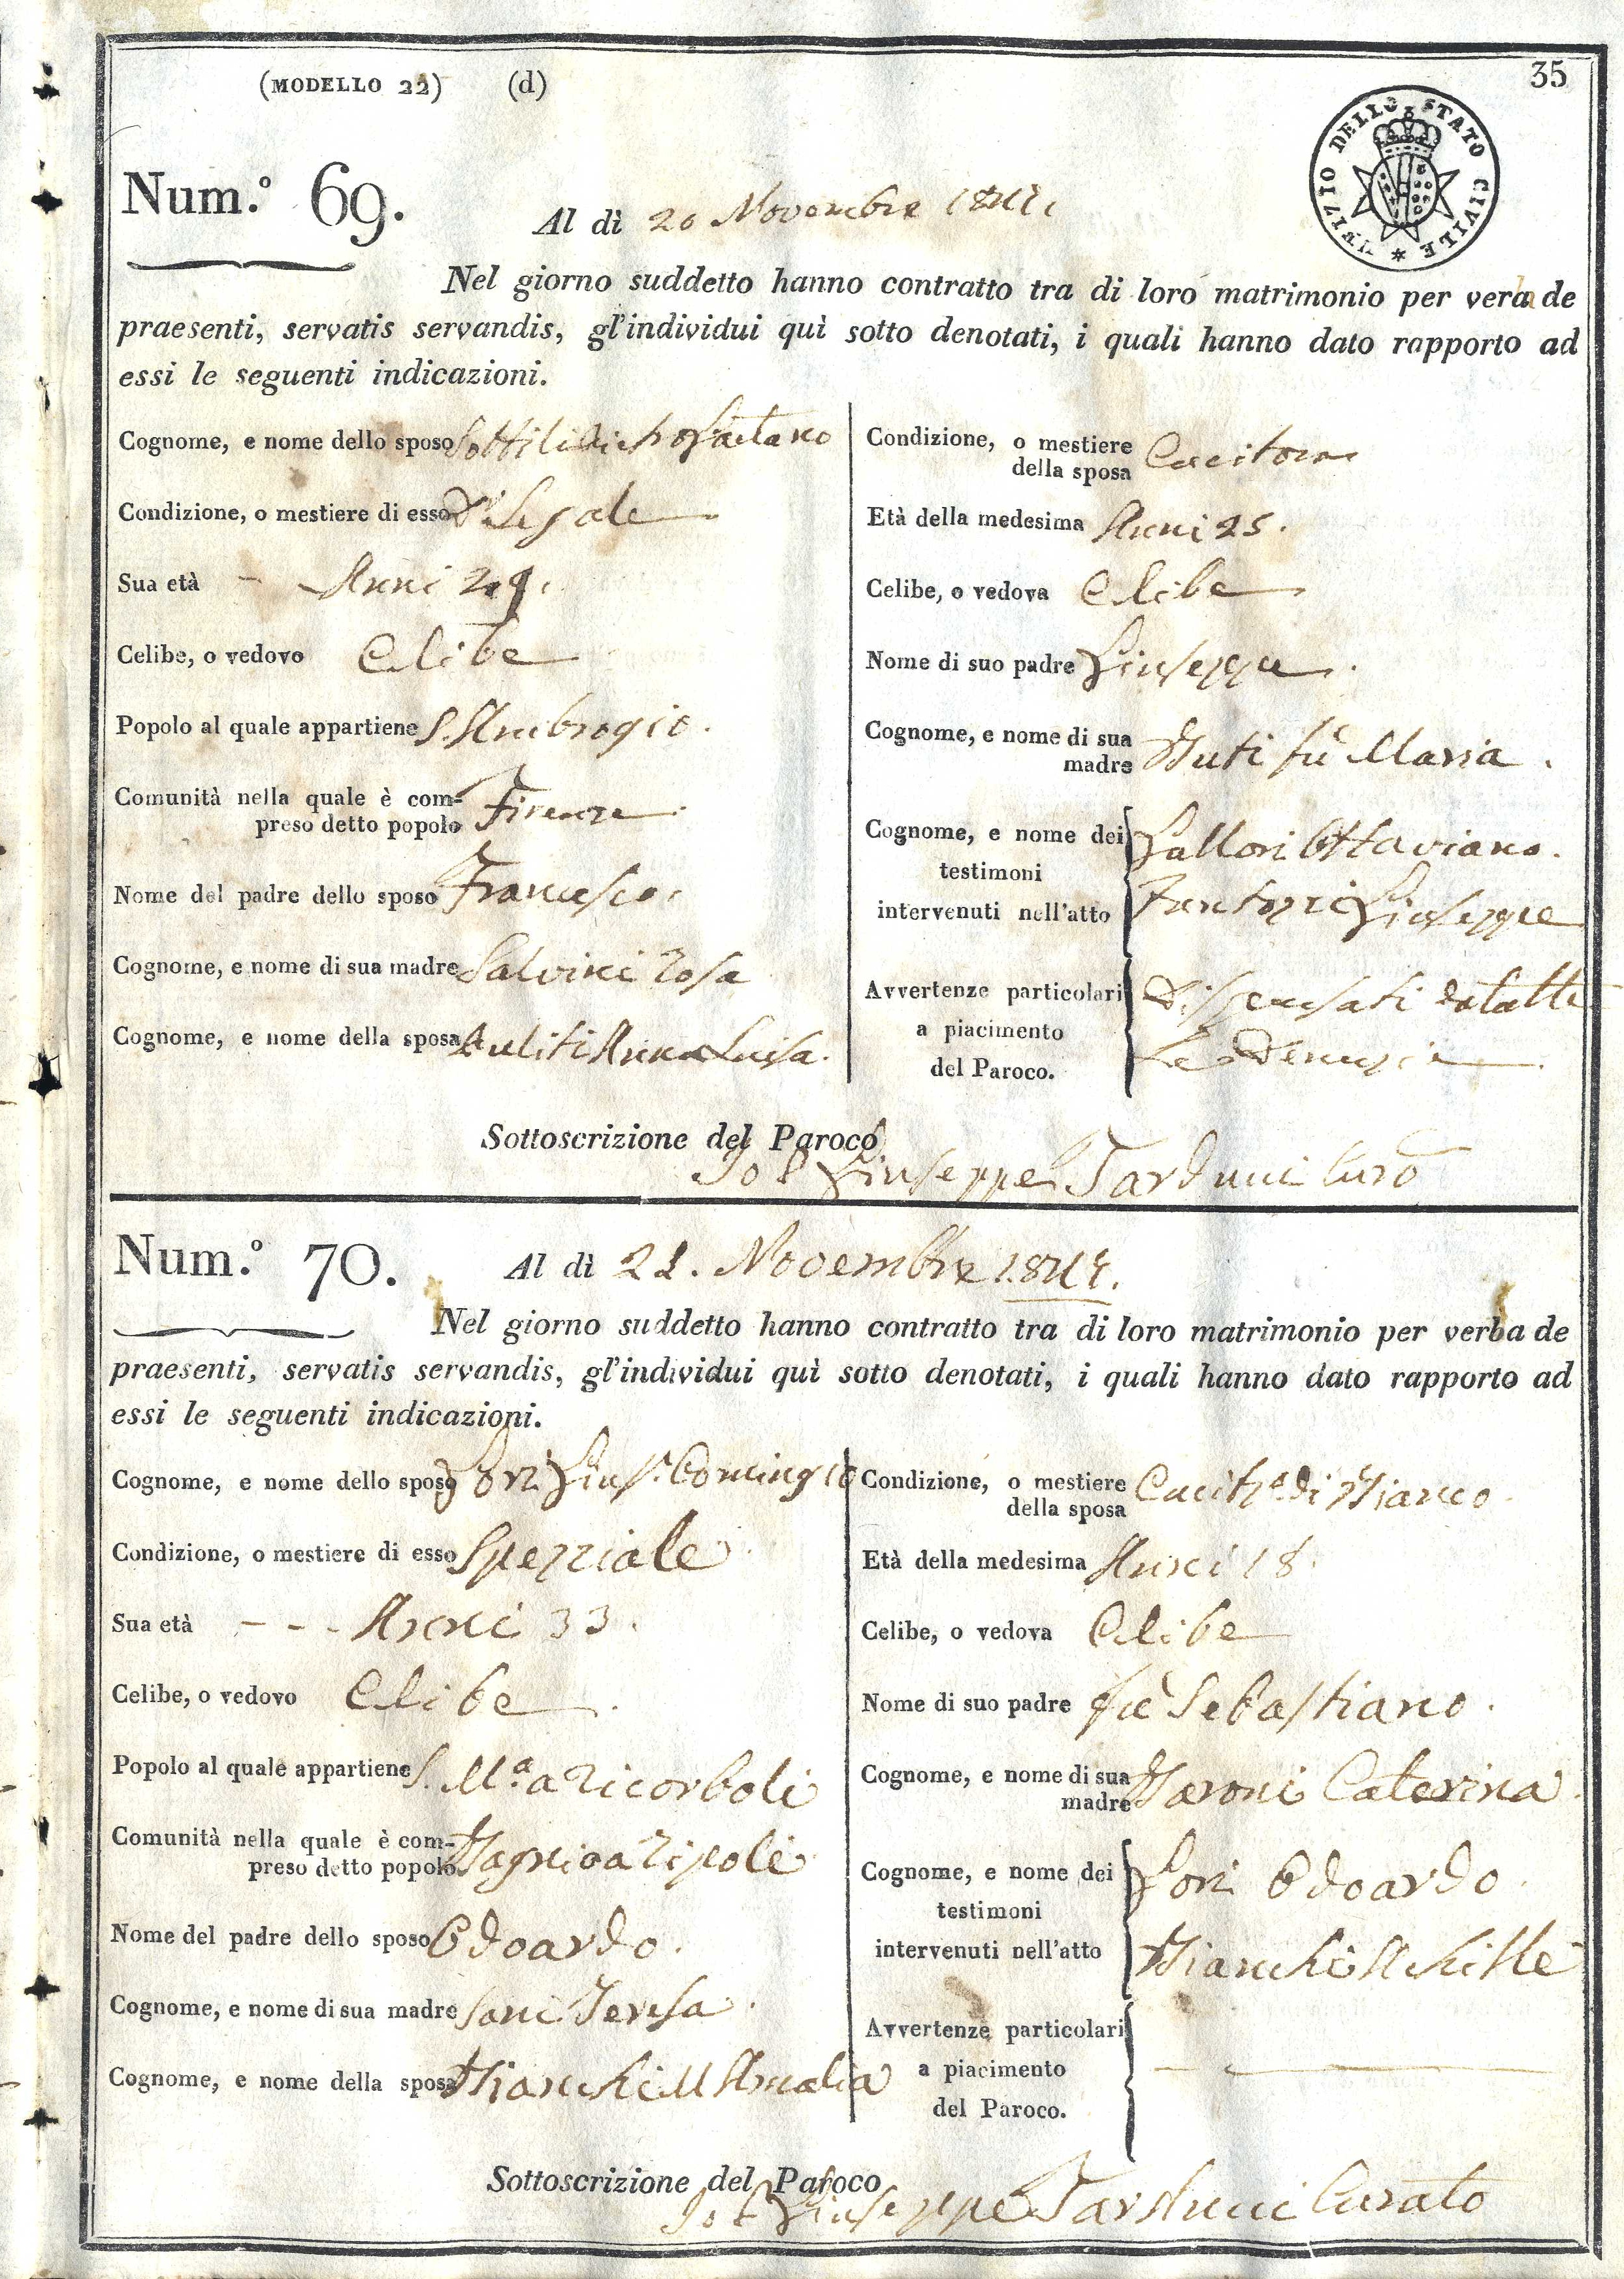 (MODELLO 22) (d)
35
UFIZIO DELLO STATO CIVILE
Num.º 69.
Al dì 20 Novembre 1841.
Nel giorno suddetto hanno contratto tra di loro matrimonio per verba de
praesenti, servatis servandis, gl'individui quì sotto denotati, i quali hanno dato rapporto ad
essi le seguenti indicazioni.
Cognome, e nome dello sposo Gaetano
Condizione, o mestiere di esso
Sua età - Anni 29.
Celibe, o vedovo Celibe
Popolo al quale appartiene S. Ambrogio.
Comunità nella quale è com-
preso detto popolo Firenze
Nome del padre dello sposo Francesco.
Cognome, e nome di sua madre Salvini Rosa
Cognome, e nome della sposa Auliti Anna Luisa.
Condizione, o mestiere
della sposa Cucitora
Età della medesima Anni 25.
Celibe, o vedova Celibe
Nome di suo padre Giuseppe.
Cognome, e nome di sua
madre Buti fù Maria.
Cognome, e nome dei
testimoni
intervenuti nell'atto
Gallori Ottaviano.
Fantozzi Giuseppe
Avvertenze particolari
a piacimento
del Paroco.
Dispensati da tutte
Le Denunzie
Sottoscrizione del Paroco
Io P. Giuseppe Tarducci Curo
Num.º 70.
Al dì 21. Novembre 1841.
Nel giorno suddetto hanno contratto tra di loro matrimonio per verba de
praesenti, servatis servandis, gl'individui quì sotto denotati, i quali hanno dato rapporto ad
essi le seguenti indicazioni.
Cognome, e nome dello sposo Gori Gius.e Comingio
Condizione, o mestiere di esso Speziale
Sua età - - - Anni 33.
Celibe, o vedovo Celibe
Popolo al quale appartiene S. M.a a Ricorboli
Comunità nella quale è com-
preso detto popolo Bagnio a Ripoli
Nome del padre dello sposo Edoardo.
Cognome, e nome di sua madre Sani Teresa.
Cognome, e nome della sposa Bianchi M Amalia
Condizione, o mestiere
della sposa Cucit.e di Bianco.
Età della medesima Anni 18.
Celibe, o vedova Celibe
Nome di suo padre fù Sebastiano.
Cognome, e nome di sua
madre Baroni Caterina.
Cognome, e nome dei
testimoni
intervenuti nell'atto
Gori Edoardo.
Bianchi Achille
Avvertenze particolari
a piacimento
del Paroco.
Sottoscrizione del Paroco
Io P. Giuseppe Tarducci Curato